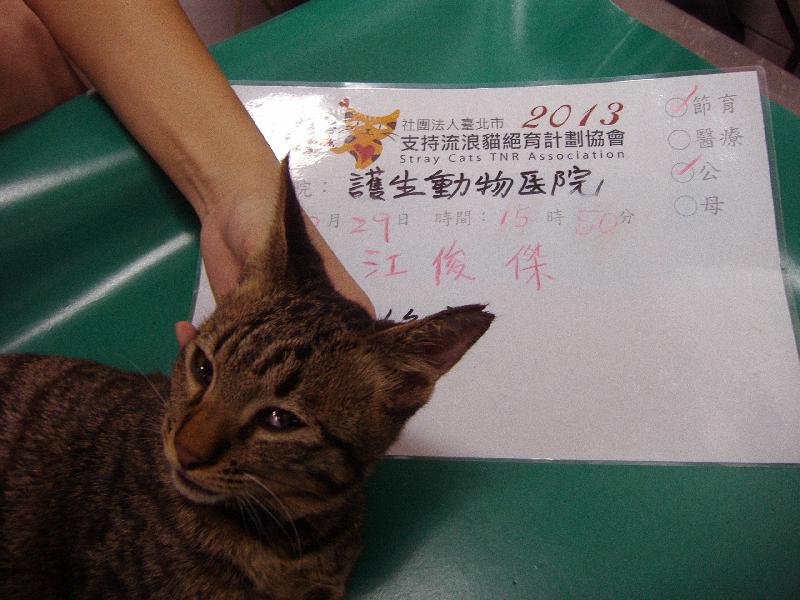 社團法人臺北市 2013
支持流浪貓絕育計劃協會
Stray Cats TNR Association
院： 護生動物医院
月 29 日 時間： 15 時 50 分
江俊傑
節育
醫療
公
母